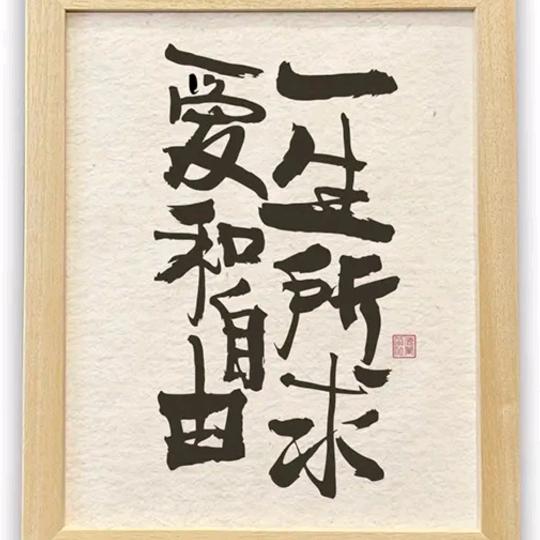 一生所求
爱和自由